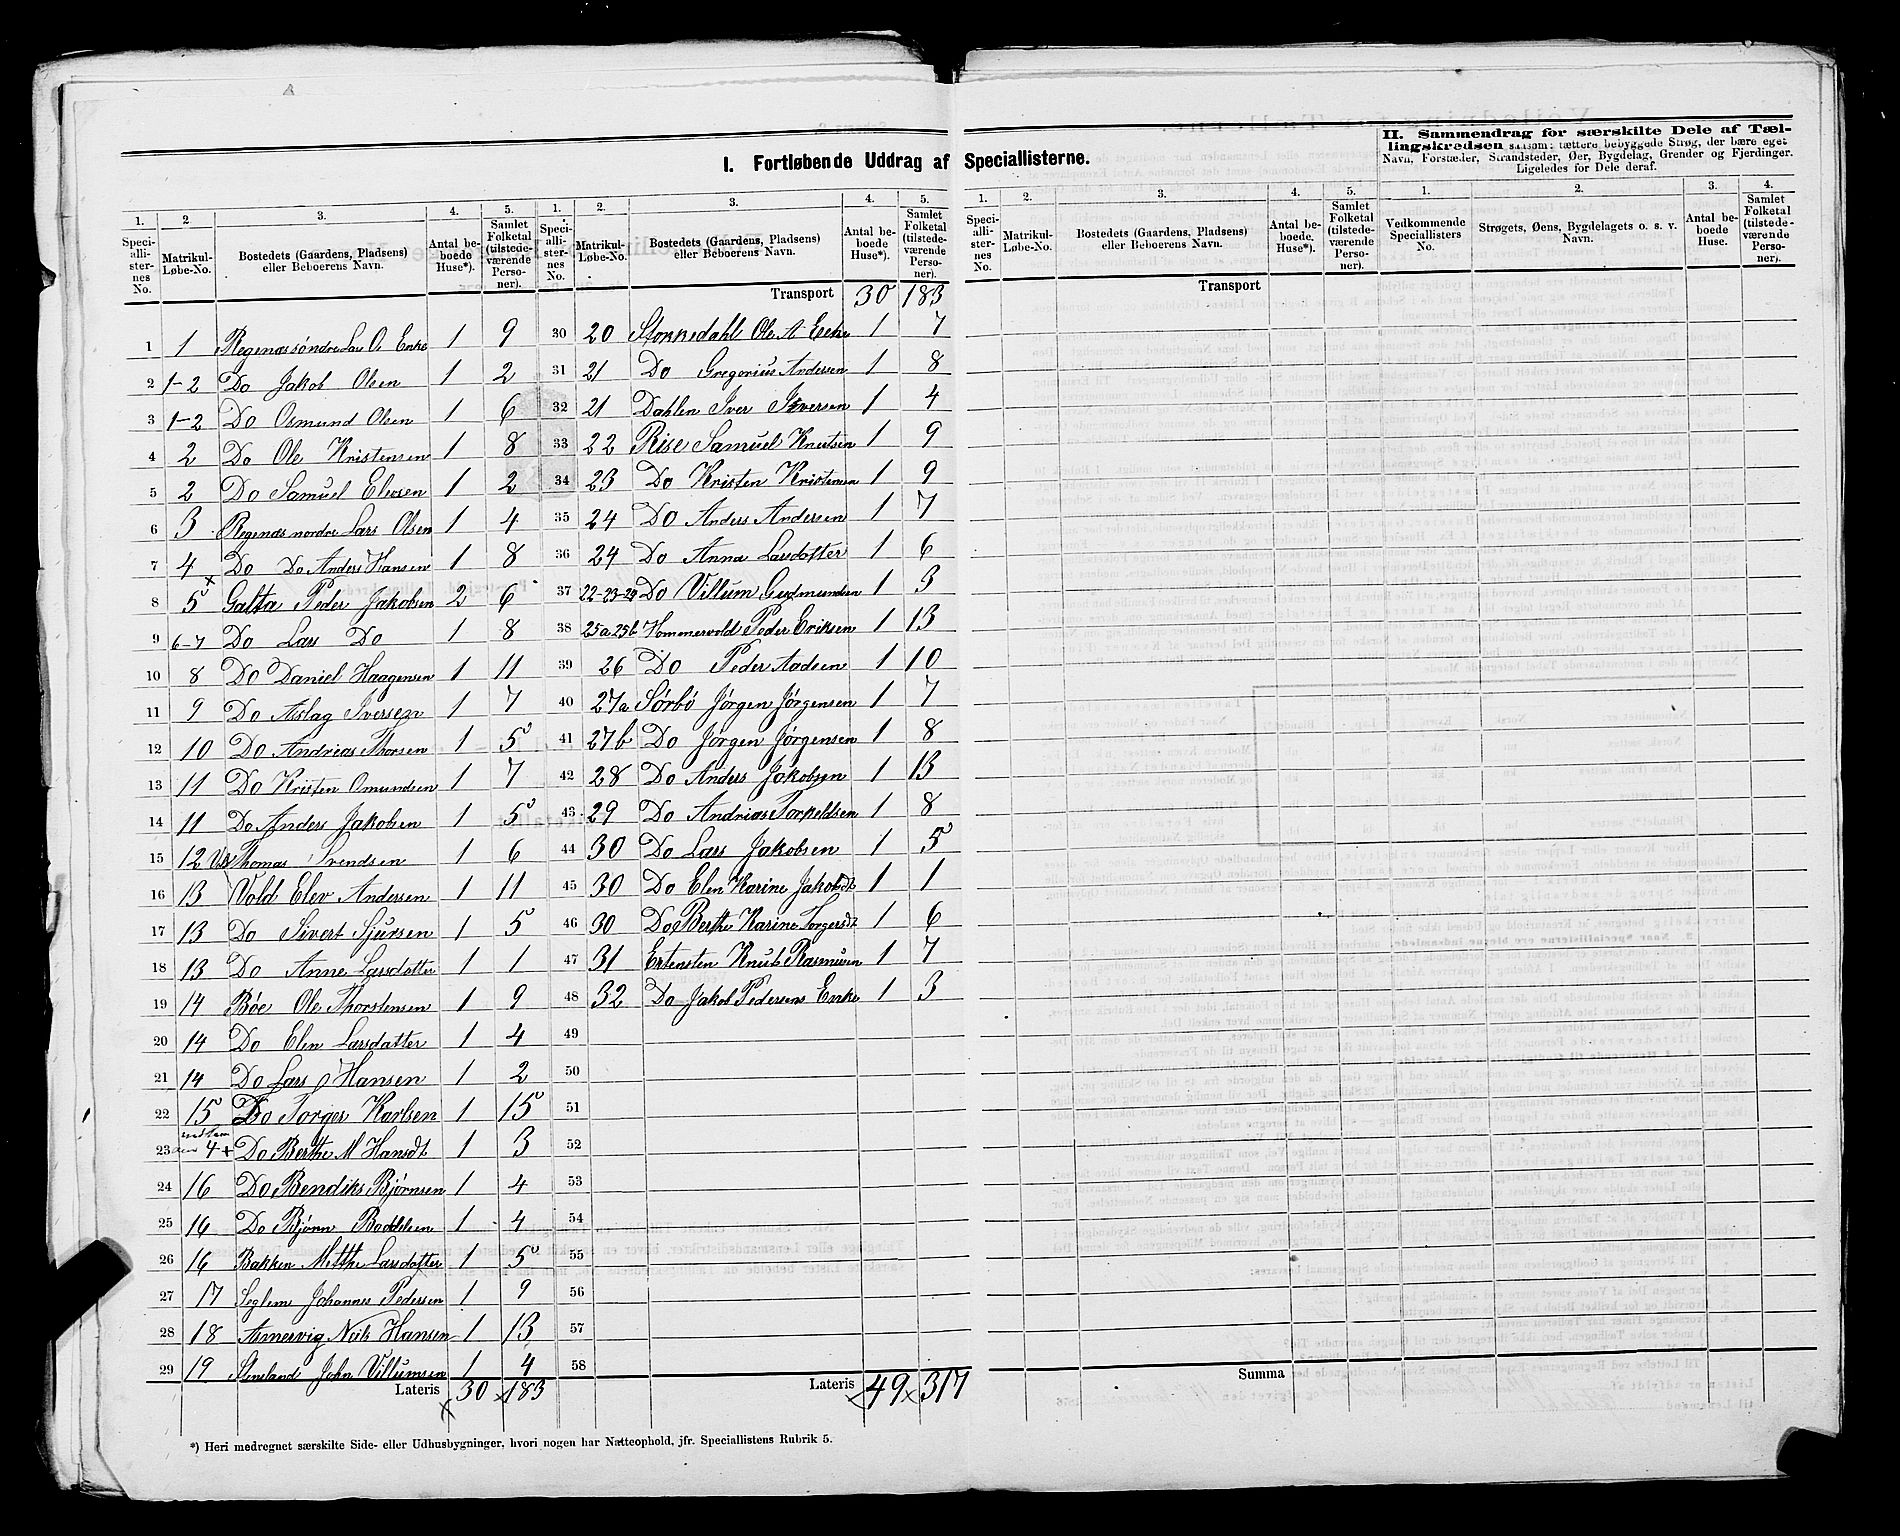 I. Fortløbende Uddrag af Speciallisterne.
II. Sammendrag for særskilte Dele af Tællingskredsen saasom: tættere bebyggede Strøg, der bære eget
Navn, Forstæder, Strandsteder, Øer, Bygdelag, Grender og Fjerdinger.
Ligeledes for Dele deraf.
1. 2. 3. 4. 5. 1. 2. 3. 4. 5. 1. 2. 3. 4. 5. 1. 2. 3. 4.
Speciallisternes No. Matrikul-Løbe-No. Bostedets (Gaardens, Pladsens) eller Beboerens Navn. Antal beboede Huse*). Samlet Folketal (tilstedeværende Personer).
Speciallisternes No. Matrikul-Løbe-No. Bostedets (Gaardens, Pladsens) eller Beboerens Navn. Antal beboede Huse*). Samlet Folketal (tilstedeværende Personer).
Speciallisternes No. Matrikul-Løbe-No. Bostedets (Gaardens, Pladsens) eller Beboerens Navn. Antal beboede Huse*). Samlet Folketal (tilstedeværende Personer).
Vedkommende Speciallisters No. Strøgets, Øens, Bygdelagets o. s. v. Navn. Antal beboede Huse. Samlet Folketal (tilstedeværende Personer).
1 1 Regenæs søndre Lars O. Enke 1 9
2 1-2 Do Jakob Olsen 1 2
3 1-2 Do Osmund Olsen 1 6
4 2 Do Ole Kristensen 1 8
5 2 Do Samuel Elevsen 1 2
6 3 Regenæs nordre Lars Olsen 1 4
7 4 Do Do Anders Hansen 1 8
8 5 Galta Peder Jakobsen 2 6
9 6-7 Do Lars Do 1 8
10 8 Do Daniel Haagensen 1 11
11 9 Do Aslag Iversen 1 7
12 10 Do Andreas Thorsen 1 5
13 11 Do Kristen Omundsen 1 7
14 11 Do Anders Jakobsen 1 5
15 12 Thomas Svendsen 1 6
16 13 Vold Elev Andersen 1 11
17 13 Do Sivert Sjursen 1 5
18 13 Do Anne Larsdatter 1 1
19 14 Bøe Ole Thorstensen 1 9
20 14 Do Elen Larsdatter 1 4
21 14 Do Lars Hansen 1 2
22 15 Do Torger Karlsen 1 15
23 4 + Do Berthe M Hansdt 1 3
24 16 Do Bendiks Bjørnsen 1 4
25 16 Do Bjørn 1 4
26 16 Bakken Metthe Larsdatter 1 5
27 17 Seglem Johannes Pedersen 1 9
28 18 Asmervig Neils Hansen 1 13
29 19 Stensland John Villumsen 1 4
Lateris 30 183
Transport 30 183
30 20 Stokkedahl Ole A Enke 1 7
31 21 Do Gregorius Andersen 1 8
32 21 Dahlen Iver Iversen 1 4
33 22 Rise Samuel Knutsen 1 9
34 23 Do Kristen Kristensen 1 9
35 24 Do Anders Andersen 1 7
36 24 Do Anna Larsdatter 1 6
37 22-23-24 Do Villum Gudmundsen 1 3
38 25a 25b Hommervold Peder Eriksen 1 13
39 26 Do Peder Aadsen 1 10
40 27a Sørbø Jørgen Jørgensen 1 7
41 27b Do Jørgen Jørgensen 1 8
42 28 Do Anders Jakobsen 1 13
43 29 Do Andrias Torkeldsen 1 8
44 30 Do Lars Jakobsen 1 5
45 30 Do Elen Karine Jakobsdt 1 1
46 30 Do Berthe Karine Torgersdt 1 6
47 31 Ertensten Knut Rasmusen 1 7
48 32 Do Jakob Pedersens Enke 1 3
49
50
51
52
53
54
55
56
57
58
Lateris 49 317
Transport
Summa
*) Heri medregnet særskilte Side- eller Udhusbygninger, hvori nogen har Natteophold, jfr. Speciallistens Rubrik 5.